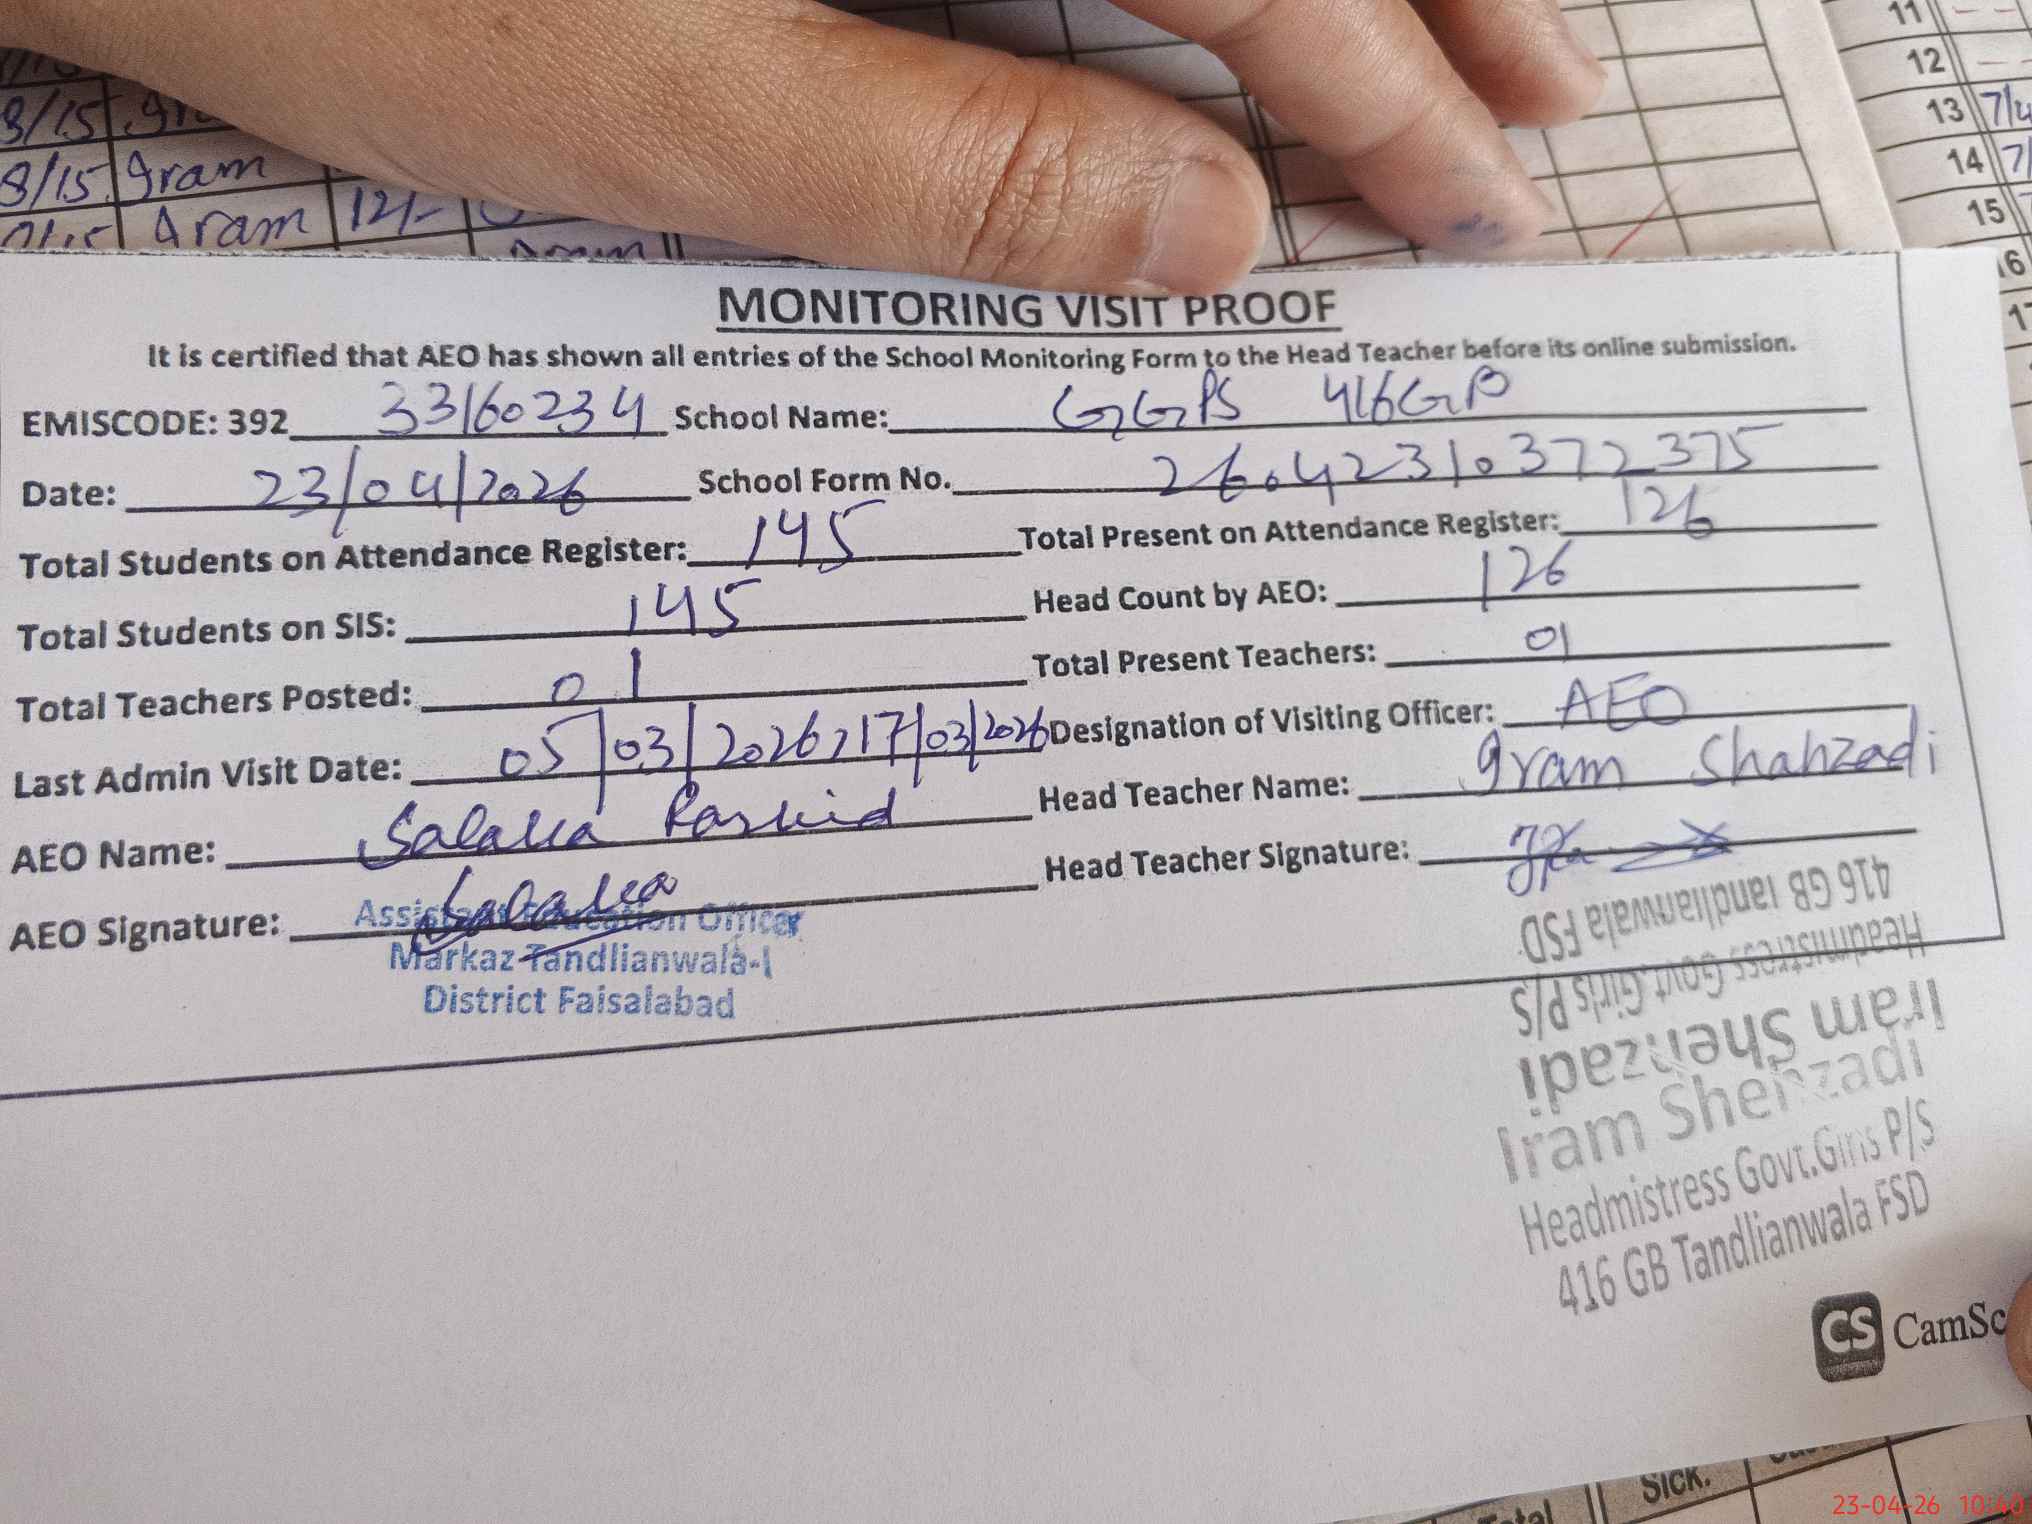 11
12
13 7/4
14 7/
15
16
17
8/15 gram
Aram 12/-
MONITORING VISIT PROOF
It is certified that AEO has shown all entries of the School Monitoring Form to the Head Teacher before its online submission.
EMISCODE: 392 33160234 School Name: GGPS 416GB
Date: 23/04/2026 School Form No. 26042310372375
Total Students on Attendance Register: 145 Total Present on Attendance Register: 126
Total Students on SIS: 145 Head Count by AEO: 126
Total Teachers Posted: 01 Total Present Teachers: 01
Last Admin Visit Date: 05/03/2026,17/03/2026 Designation of Visiting Officer: AEO
AEO Name: Rashid Head Teacher Name: Iram Shahzadi
AEO Signature: Head Teacher Signature:
Assistant Education Officer
Markaz Tandlianwala-I
District Faisalabad
416 GB Tandlianwala FSD
Headmistress Govt.Girls P/S
Iram Shehzadi
Iram Shehzadi
Headmistress Govt.Girls P/S
416 GB Tandlianwala FSD
CS CamSc
Sick.
Total
23-04-26 10:40